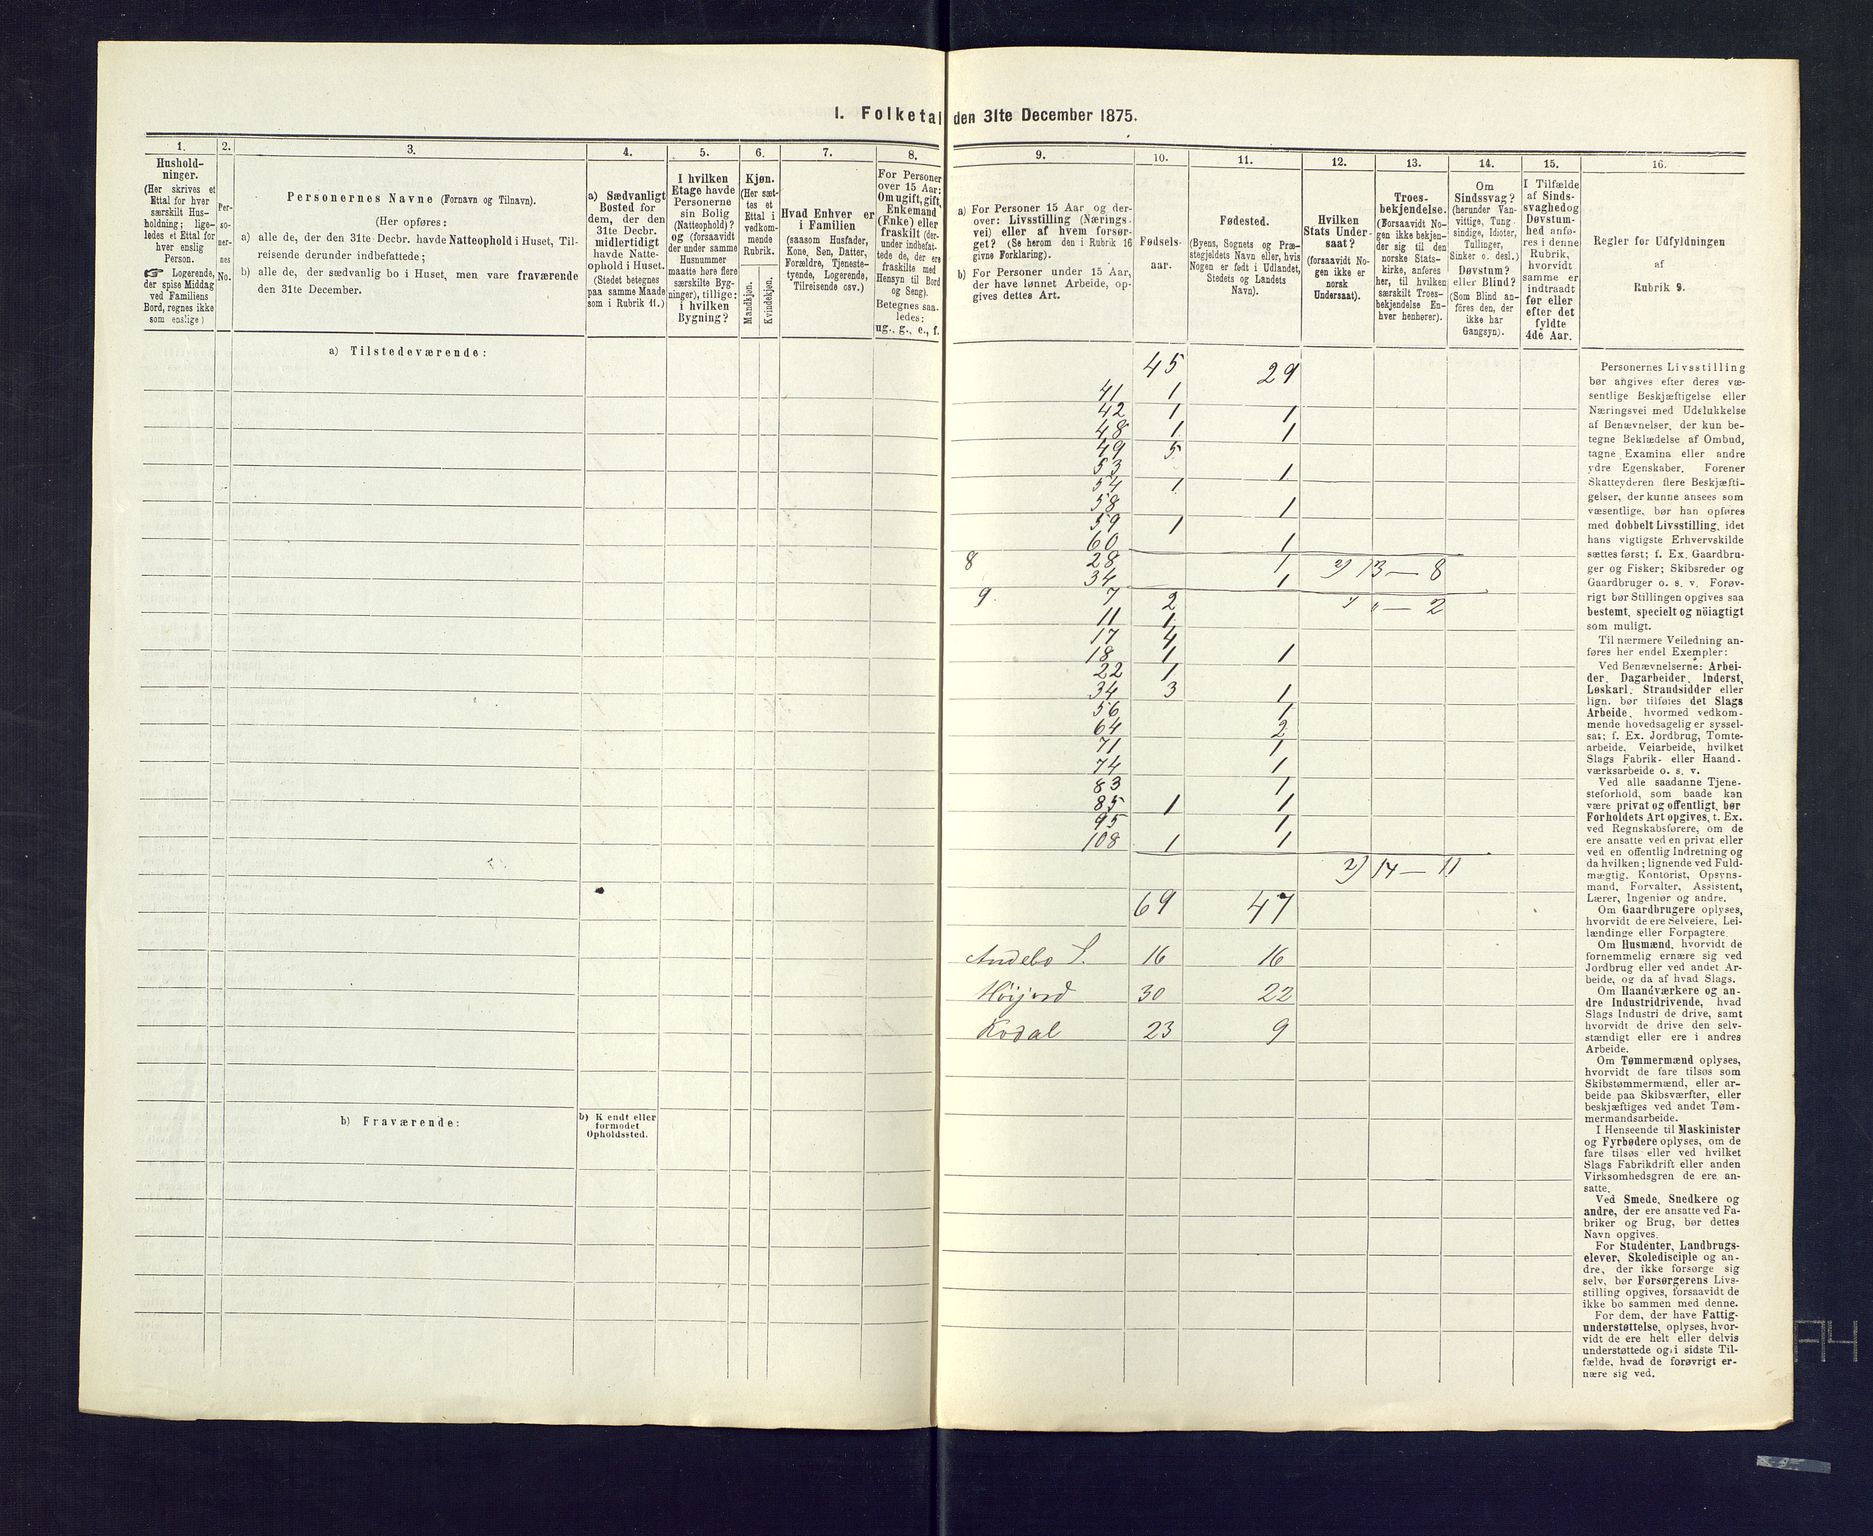 I. Folketal den 31te December 1875.
1.
Hushold-
ninger.
(Her skrives et
Ettal for hver
særskilt Hus-
holdning; lige-
ledes et Ettal for
hver enslig
Person.
☞ Logerende,
der spise Middag
ved Familiens
Bord, regnes ikke
som enslige)
2.
Per-
so-
ner-
nes
No.
3.
Personernes Navne (Fornavn og Tilnavn).
(Her opføres:
a) alle de, der den 31te Decbr. havde Natteophold i Huset, Til-
reisende derunder indbefattede;
b) alle de, der sædvanlig bo i Huset, men vare fraværende
den 31te December.
4.
a) Sædvanligt
Bosted for
dem, der den
31te Decbr.
midlertidigt
havde Natte-
ophold i Huset.
(Stedet betegnes
paa samme Maade
som i Rubrik 11.)
5.
I hvilken
Etage havde
Personerne
sin Bolig
(Natteophold)?
og (forsaavidt
der under samme
Husnummer
maatte høre flere
særskilte Byg-
ninger), tillige:
i hvilken
Bygning?
6.
Kjøn.
(Her sæt-
tes et
Ettal i
vedkom-
mende
Rubrik.
Mandkjøn.
Kvindekjøn.
7.
Hvad Enhver er
i Familien
(saasom Husfader,
Kone, Søn, Datter,
Forældre, Tjeneste-
tyende, Logerende,
Tilreisende osv.)
8.
For Personer
over 15 Aar:
Om ugift, gift,
Enkemand
(Enke) eller
fraskilt (der-
under indbefat-
tede de, der ere
fraskilte med
Hensyn til Bord
og Seng).
Betegnes saa-
ledes:
ug., g., e., f.
9.
a) For Personer 15 Aar og der-
over: Livsstilling (Nærings-
vei) eller af hvem forsør-
get? (Se herom den i Rubrik 16
givne Forklaring).
b) For Personer under 15 Aar,
der have lønnet Arbeide, op-
gives dettes Art.
10.
Fødsels-
aar.
11.
Fødested.
(Byens, Sognets og Præ-
stegjeldets Navn eller, hvis
Nogen er født i Udlandet,
Stedets og Landets
Navn).
12.
Hvilken
Stats Under-
saat?
(forsaavidt No-
gen ikke er
norsk
Undersaat).
13.
Troes-
bekjendelse.
(Forsaavidt No-
gen ikke bekjen-
der sig til den
norske Stats-
kirke, anføres
her, til hvilken
særskilt Troes-
bekjendelse En-
hver henhører).
14.
Om
Sindssvag?
(herunder Van-
vittige, Tung-
sindige, Idioter,
Tullinger,
Sinker o. desl.)
Døvstum?
eller Blind?
(Som Blind an-
føres den, der
ikke har
Gangsyn).
15.
I Tilfælde
af Sinds-
svaghed og
Døvstum-
hed anfø-
res i denne
Rubrik,
hvorvidt
samme er
indtraadt
før eller
efter det
fyldte
4de Aar.
16.
Regler for Udfyldningen
af
Rubrik 9.
a) Tilstedeværende:
45 29
41 1
42 1 1
48 1 1
49 5
53 1
54 1
58 1
59 1
60 1
8 28 1 2) 13 — 8
34 1
9. 7 2 " " — 2
11 1
17 4
18 1 1
22 1
34 3 1
56 1
64 2
71 1
74 1
83 1
85 1 1
95 1
108 1 1
2) 14 — 11
69 47
Andebo S. 16 16
Høijord 30 22
Kodal 23 9
b) Fraværende:
b) Kendt eller
formodet
Opholdssted.
Personernes Livsstilling
bør angives efter deres væ-
sentlige Beskjæftigelse eller
Næringsvei med Udelukkelse
af Benævnelser, der kun be-
tegne Beklædelse af Ombud,
tagne Examina eller andre
ydre Egenskaber. Forener
Skatteyderen flere Beskjæfti-
gelser, der kunne ansees som
væsentlige, bør han opføres
med dobbelt Livsstilling, idet
hans vigtigste Erhvervskilde
sættes først; f. Ex. Gaardbru-
ger og Fisker; Skibsreder og
Gaardbruger o. s. v. Forøv-
rigt bør Stillingen opgives saa
bestemt, specielt og nöiagtigt
som muligt.
Til nærmere Veiledning an-
føres her endel Exempler:
Ved Benævnelserne: Arbei-
der, Dagarbeider, Inderst,
Løskarl, Strandsidder eller
lign. bør tilføies det Slags
Arbeide, hvormed vedkom-
mende hovedsagelig er syssel-
sat; f. Ex. Jordbrug, Tomte-
arbeide, Veiarbeide, hvilket
Slags Fabrik- eller Haand-
værksarbeide o. s. v.
Ved alle saadanne Tjene-
steforhold, som baade kan
være privat og offentligt, bør
Forholdets Art opgives, t. Ex.
ved Regnskabsførere, om de
ere ansatte ved en privat eller
ved en offentlig Indretning og
da hvilken; lignende ved Fuld-
mægtig, Kontorist, Opsyns-
mand, Forvalter, Assistent,
Lærer, Ingeniør og andre.
Om Gaardbrugere oplyses,
hvorvidt de ere Selveiere, Lei-
lændinge eller Forpagtere.
Om Husmænd, hvorvidt de
fornemmelig ernære sig ved
Jordbrug eller ved andet Ar-
beide, og da af hvad Slags.
Om Haandværkere og an-
dre Industridrivende, hvad
Slags Industri de drive, samt
hvorvidt de drive den selv-
stændigt eller ere i andres
Arbeide.
Om Tømmermænd oplyses,
hvorvidt de fare tilsøs som
Skibstømmermænd, eller ar-
beide paa Skibsværfter, eller
beskjæftiges ved andet Tøm-
mermandsarbeide.
I Henseende til Maskinister
og Fyrbødere oplyses, om de
fare tilsøs eller ved hvilket
Slags Fabrikdrift eller anden
Virksomhedsgren de ere an-
satte.
Ved Smede, Snedkere og
andre, der ere ansatte ved Fa-
briker og Brug, bør dettes
Navn opgives.
For Studenter, Landbrugs-
elever, Skoledisciple og an-
dre, der ikke forsørge sig
selv, bør Forsørgerens Livs-
stilling opgives, forsaavidt de
ikke bo sammen med denne.
For dem, der have Fattig-
understøttelse, oplyses, hvor-
vidt de ere helt eller delvis
understøttede og i sidste Til-
fælde, hvad de forøvrigt er-
nære sig ved.